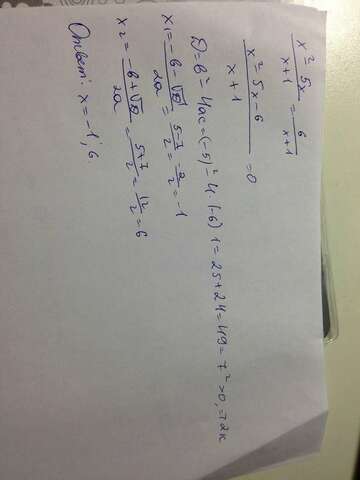 x² - 5x / x+1 = 6 / x+1
x² 5x - 6 / x + 1 = 0
D = в² - 4ac = (-5)² - 4·(-6)·1 = 25 + 24 = 49 = 7² > 0, => 2к
x₁ = -в - √D / 2a = 5-7 / 2 = -2 / 2 = -1
x₂ = -в + √D / 2a = 5+7 / 2 = 12 / 2 = 6
Ответ: x = -1; 6.